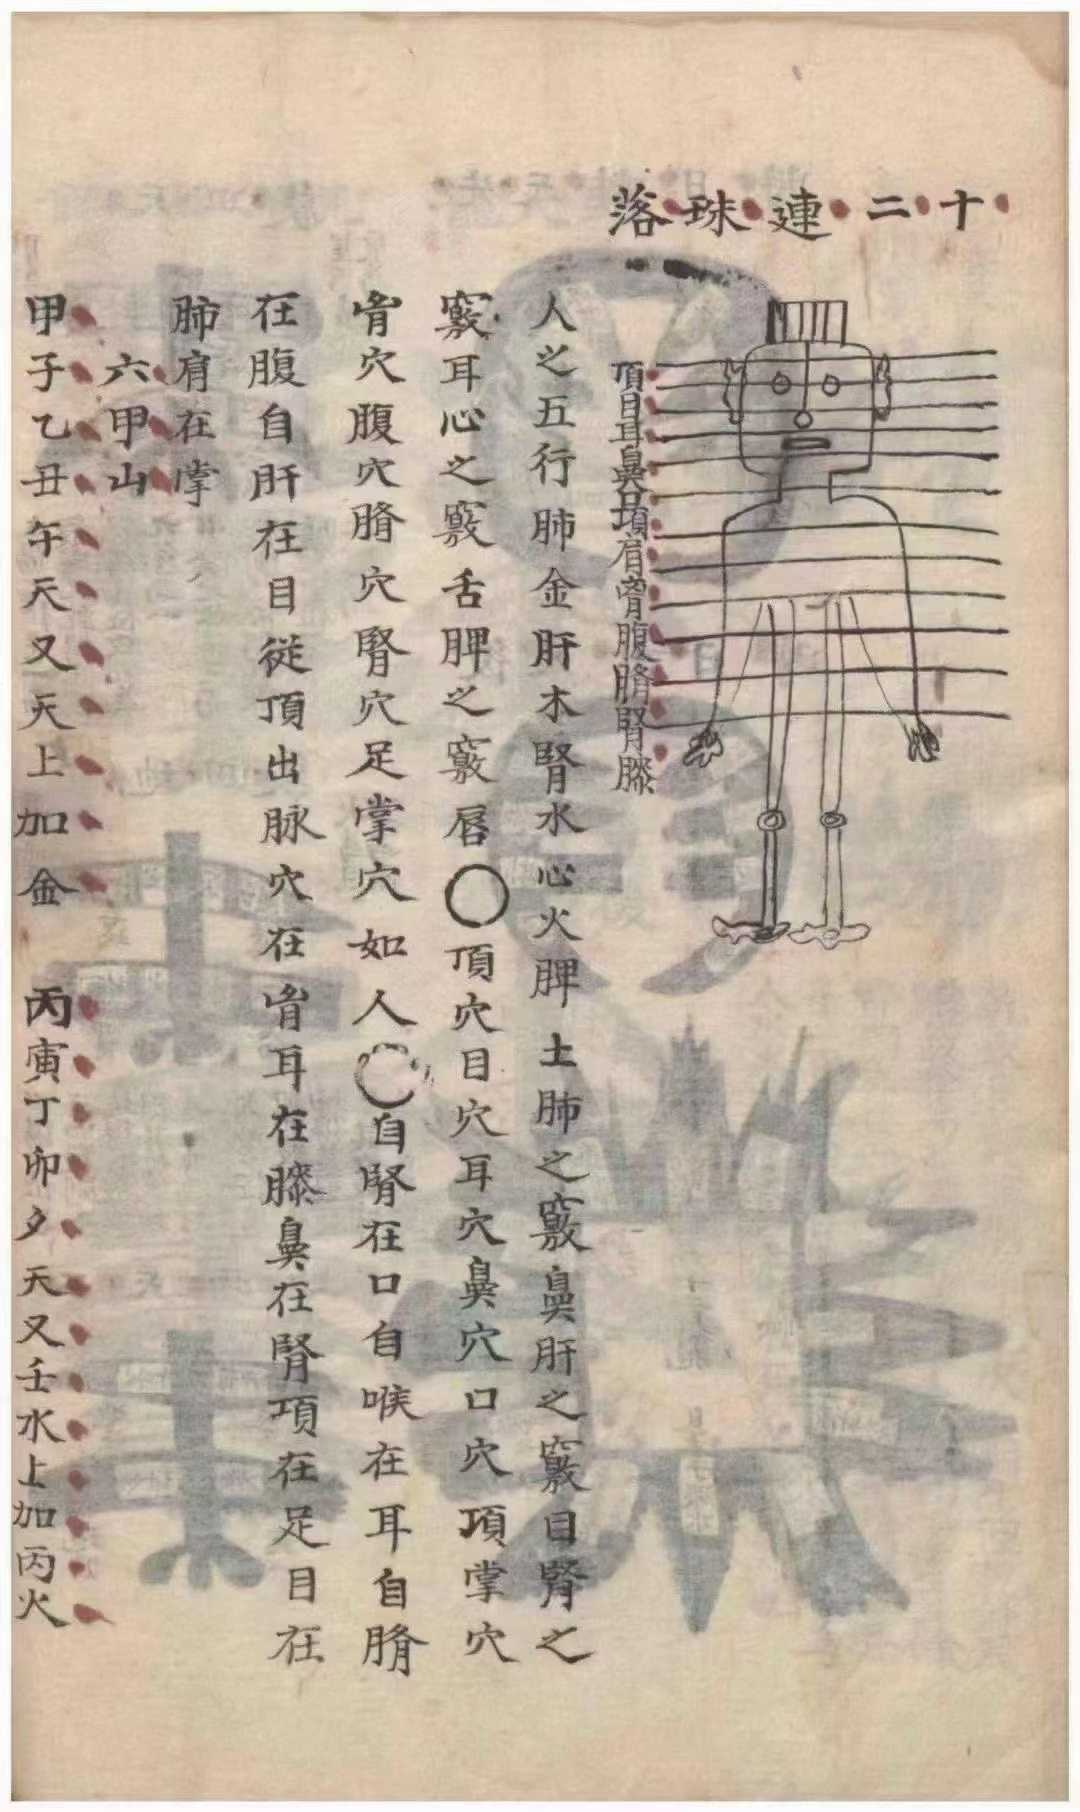 十二連珠落
頂目耳鼻口項肩胷腹臍腎膝
人之五行肺金肝木腎水心火脾土肺之竅鼻肝之竅目腎之
竅耳心之竅舌脾之竅唇〇頂穴目穴耳穴鼻穴口穴項掌穴
胷穴腹穴臍穴腎穴足掌穴如人〇自腎在口自喉在耳自臍
在腹自肝在目從頂出脉穴在胷耳在膝鼻在腎項在足目在
肺肩在掌
六甲山
甲子乙丑午天又天上加金 丙寅丁卯夕天又壬水上加丙火